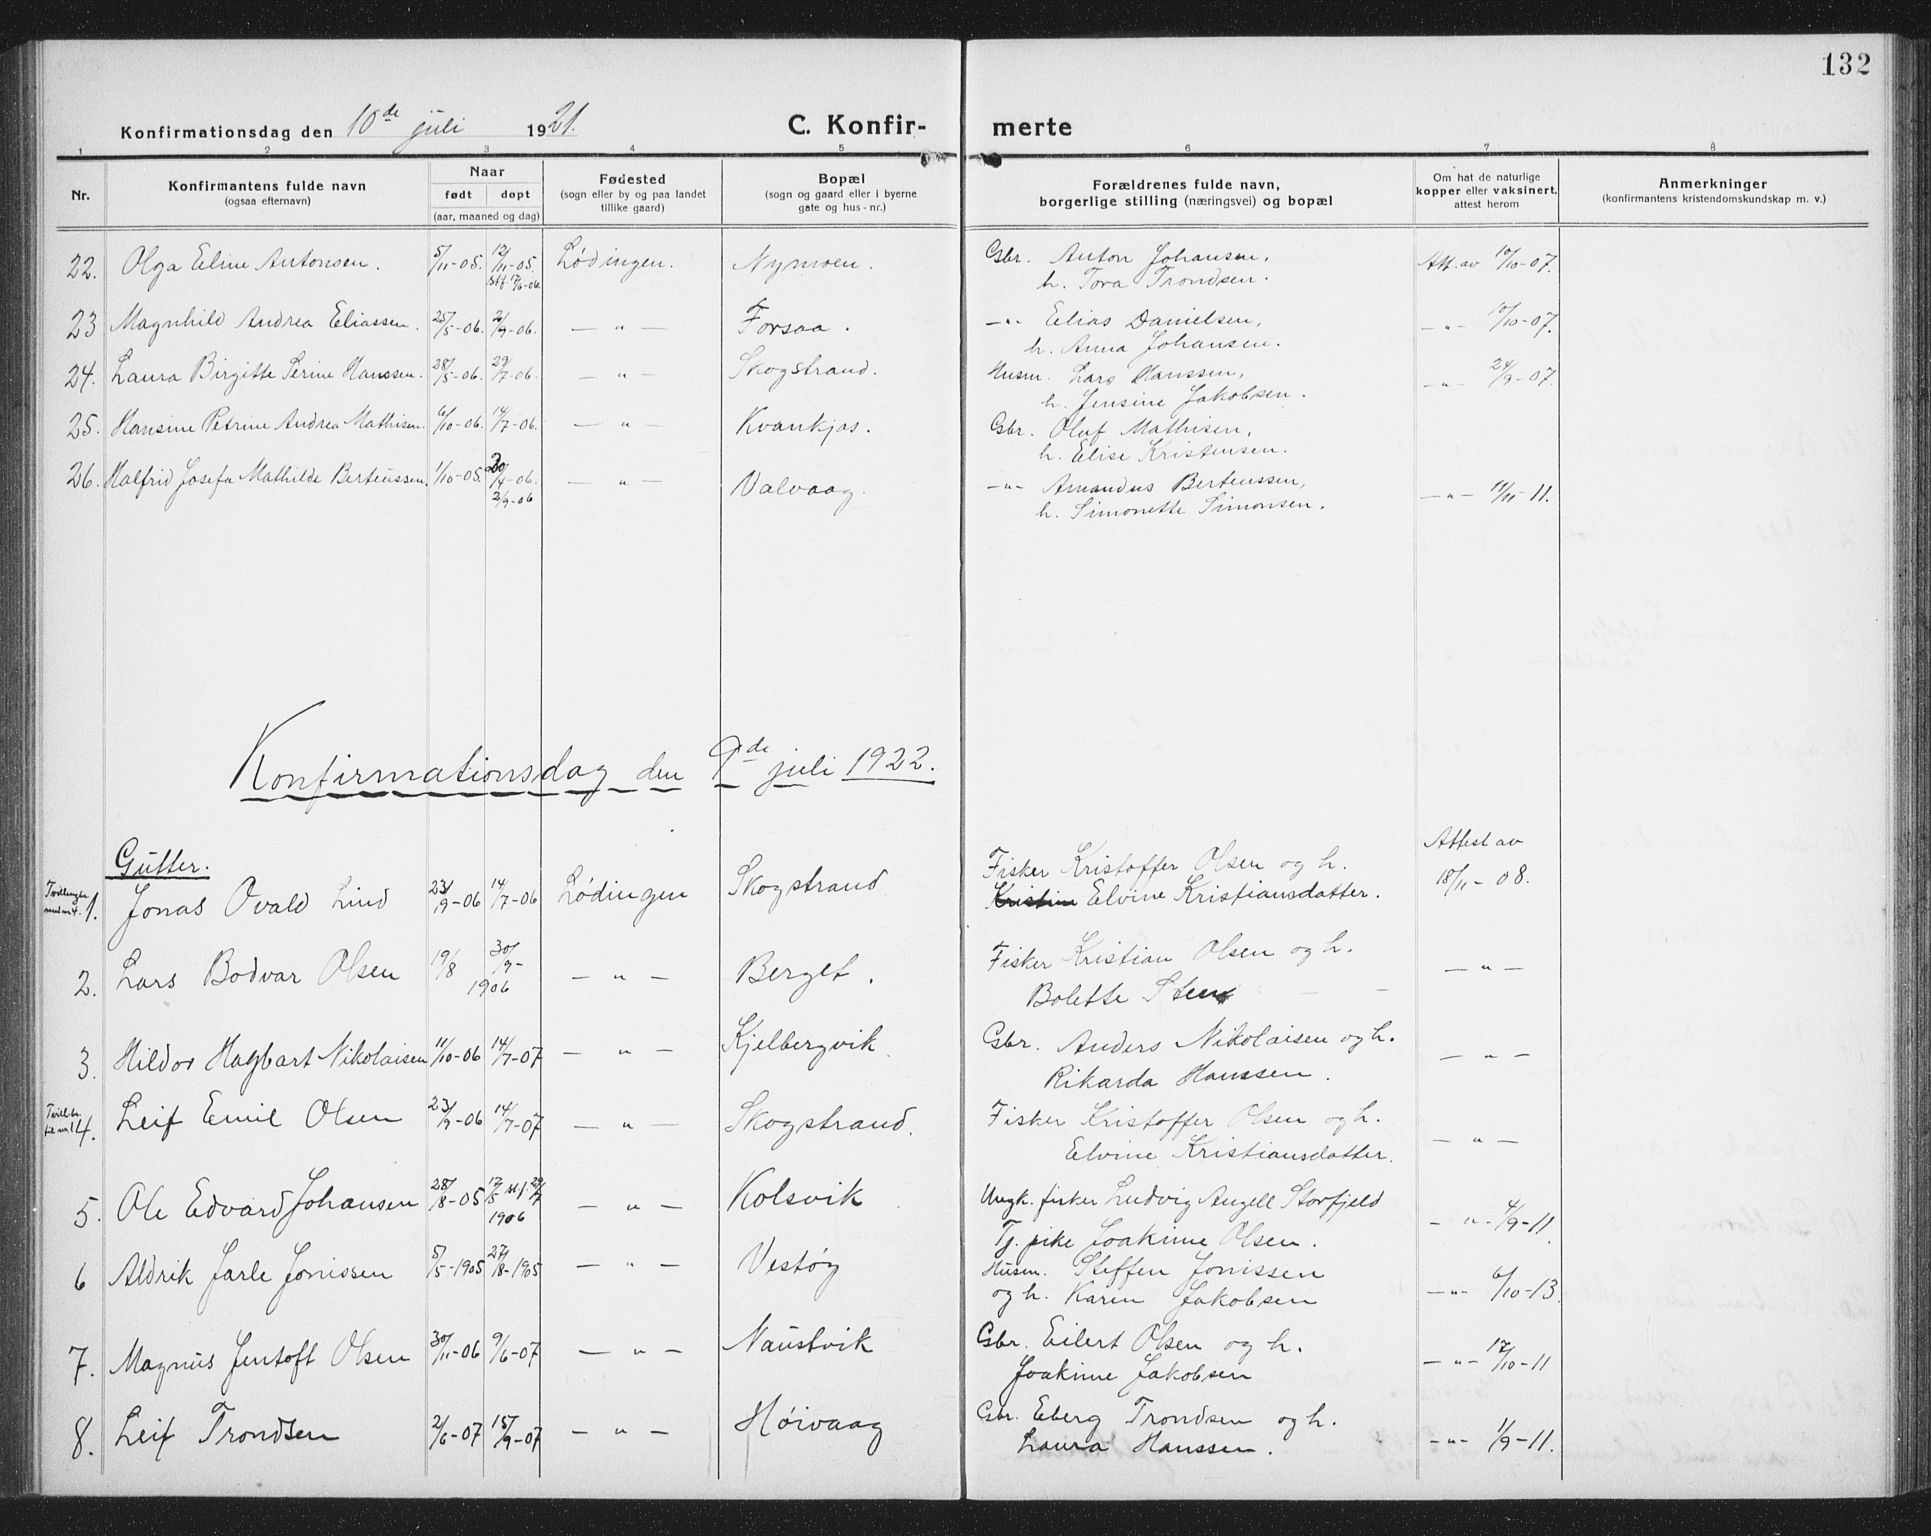 132
Konfirmationsdag den 10de juli 1921. C. Konfir- merte
1 2 3 4 5 6 7 8
Nr. Konfirmantens fulde navn (ogsaa efternavn) Naar født døpt (aar, maaned og dag) Fødested (sogn eller by og paa landet tillike gaard) Bopæl (sogn og gaard eller i byerne gate og hus-nr.) Forældrenes fulde navn, borgerlige stilling (næringsvei) og bopæl Om hat de naturlige kopper eller vaksinert, attest herom Anmerkninger (konfirmantens kristendomskundskap m. v.)
22. Olga Eline Antonsen. 5/11-05. 12/11-05. Lødingen. Nymoen. Gbr. Anton Johansen, Att. av 10/10-07.
stf. 17/6-06. h. Tora Trondsen.
23 Magnhild Andrea Eliassen. 25/5-06. 2/9-06. — " — Forsaa. —"— Elias Danielsen, —"— 10/10-07.
h. Anna Johansen.
24. Laura Birgitte Serine Hanssen. 28/5-06. 29/7-06. — " — Skogstrand. Husm. Lars Hanssen, —"— 24/9-07.
h. Jensine Jakobsen.
25. Hansine Petrine Andrea Mathisen. 6/10-06. 14/7-06. — " — Kvankjos. Gbr. Oluf Mathisen,
h. Elise Kristensen.
26. Halfrid Josefa Mathilde Berteussen. 1/10-05. /4-06. — " — Valvaag. —"— Amandus Berteussen, —"— 11/11-11.
2/9-06 h. Simonette Simonsen.
Konfirmationsdag den 9de juli 1922.
Gutter. Attest av
Tvillinger med nr 4. 1. Jonas Ovald Lind 23/9-06 14/7-06 Lødingen Skogstrand Fisker Kristoffer Olsen og h. 18/11-08.
Kristine Elvine Kristiansdatter.
2. Lars Bodvar Olsen 19/8 30/9- 1906 — " — Berget. Fisker Kristian Olsen og h. — " —
Bolette Sten
3. Hildor Hagbart Nikolaisen 11/10-06 14/7-07 — " — Kjelbergvik Gbr. Anders Nikolaisen og h. — " —
Rikarda Hanssen.
4. Leif Emil Olsen 23/9-06 14/7-07 — " — Skogstrand. Fisker Kristoffer Olsen og h. — " —
Elvine Kristiansdatter.
5. Ole Edvard Johansen 28/8-05 17/5 stf. 29/7 1906 — " — Kolsvik Ungk. fisker Ludvig Angell Storfjeld — " — 4/9-11.
Tj. pike Joakime Olsen.
6 Aldrik Jarle Jonissen 5/5-1905 27/8-1905 — " — Vestøy Husm. Steffen Jonissen
og h. Karen Jakobsen —"— 6/10-13.
7. Magnus Jentoft Olsen 30/11-06 9/6-07 — " — Naustvik Gbr. Eilert Olsen og h. — " — 17/10-11
Joakime Jakobsen
8. Leif Trondsen 2/6-07 15/9-07 — " — Høivaag Gbr. Eberg Trondsen og h.
Laura Hanssen. —"— 1/9-11.